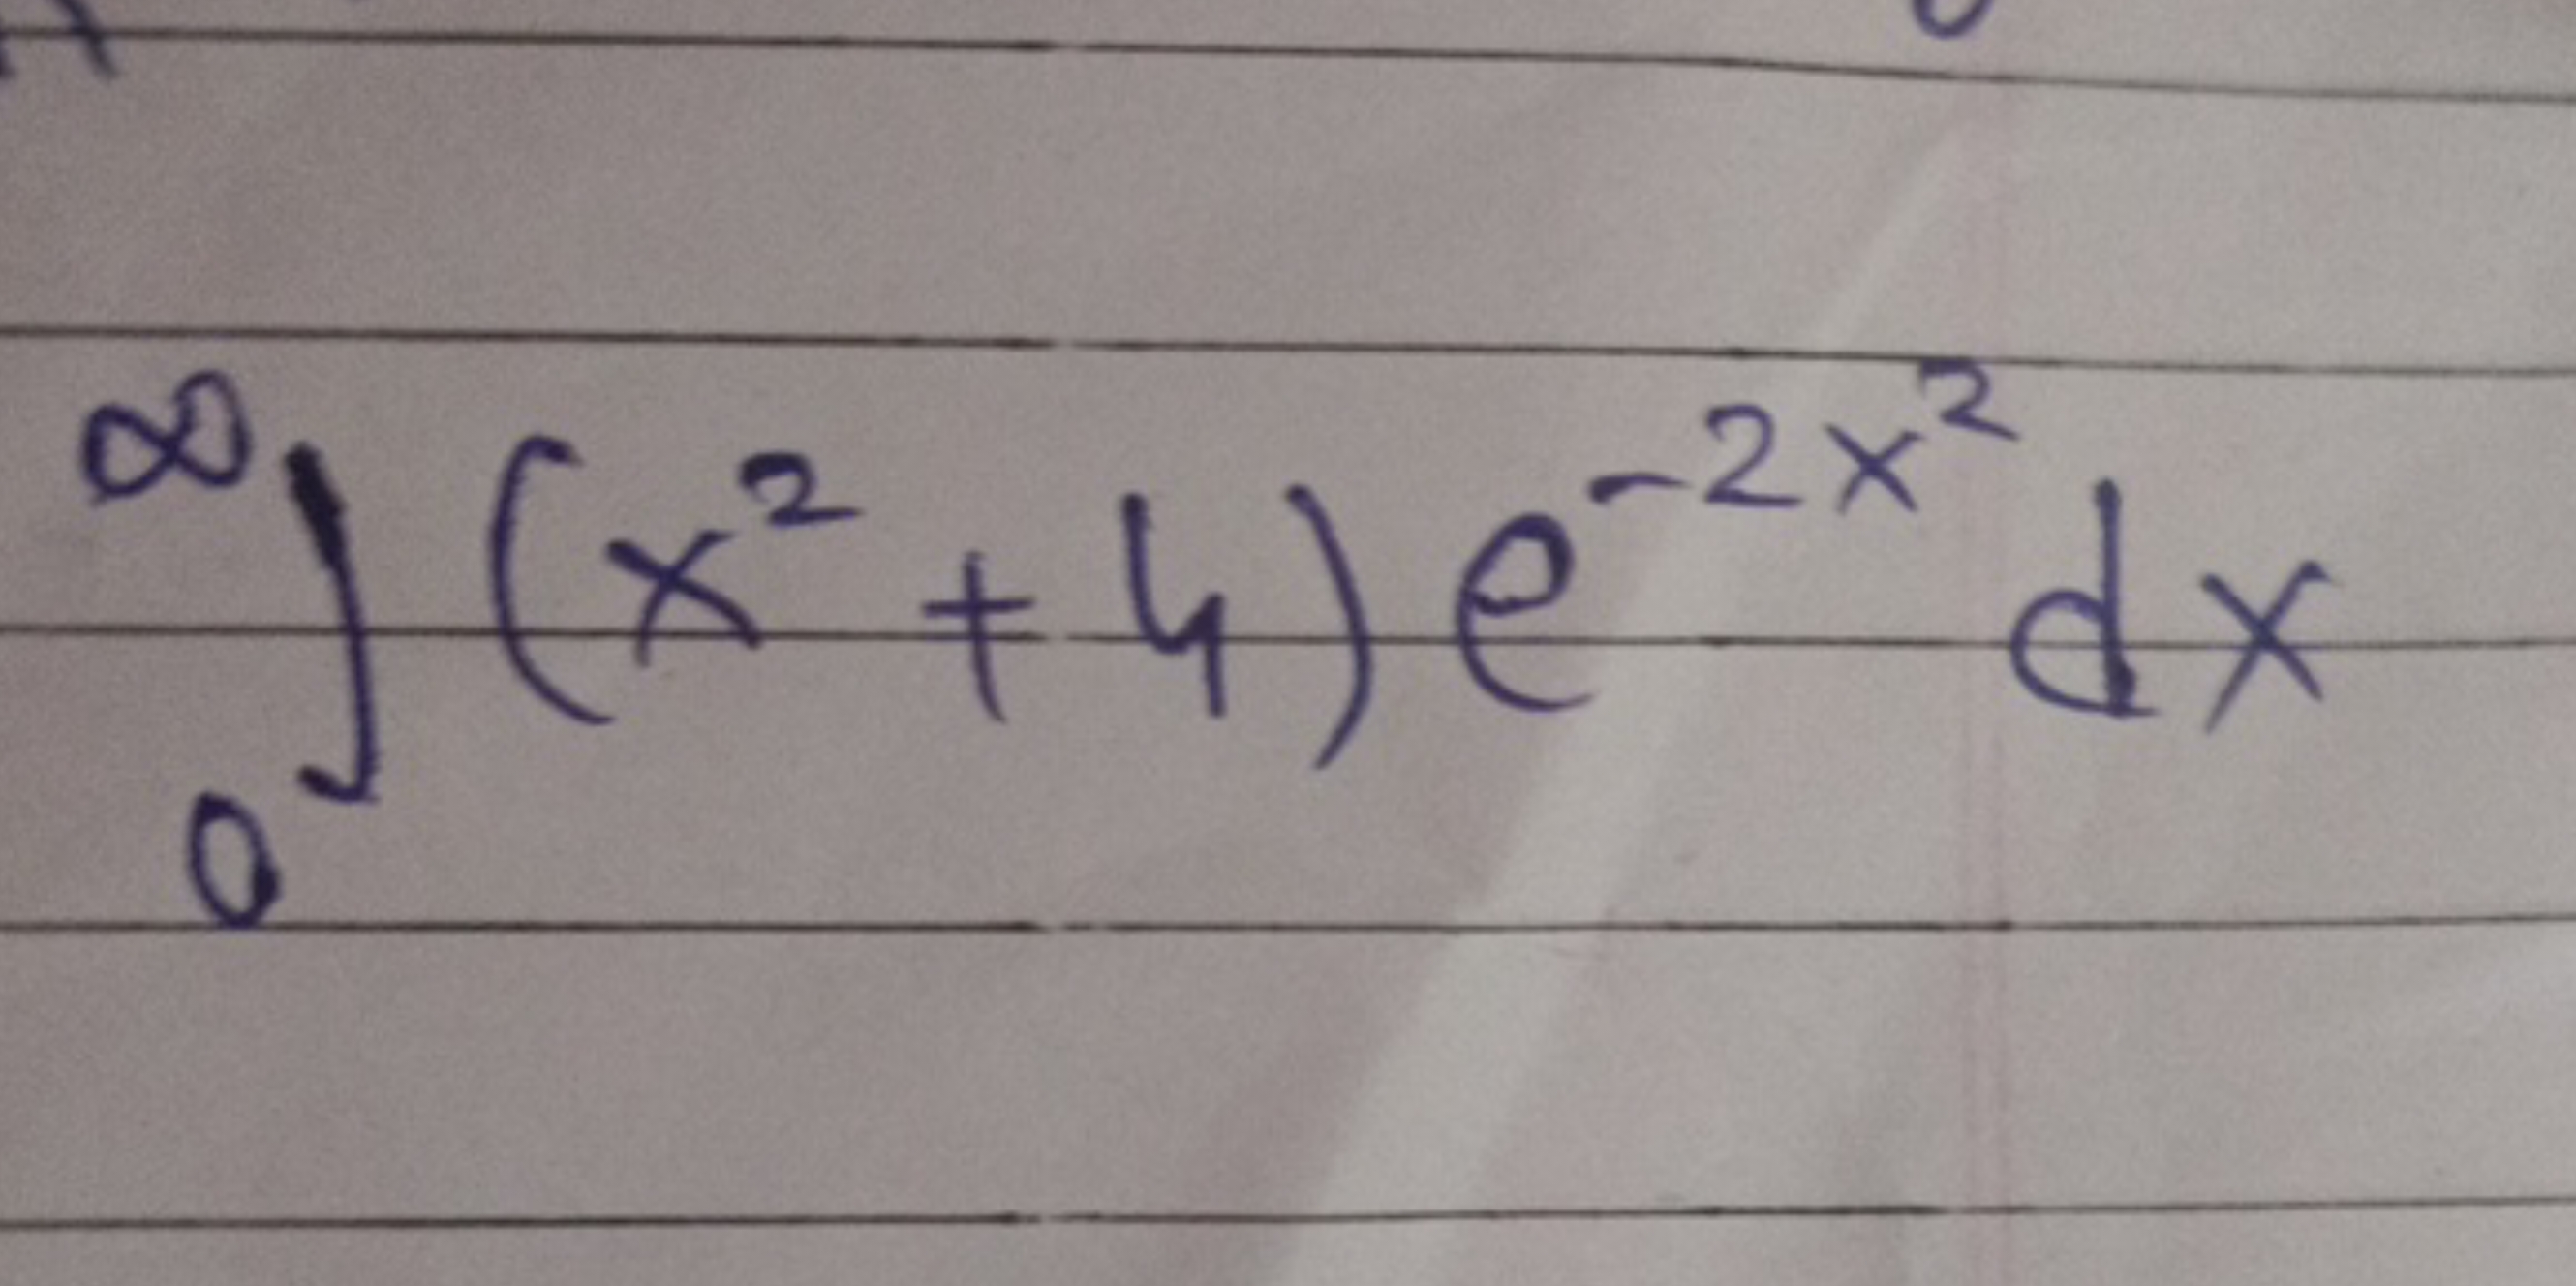 ∞∫0 (x² + 4) e^{-2x²} dx